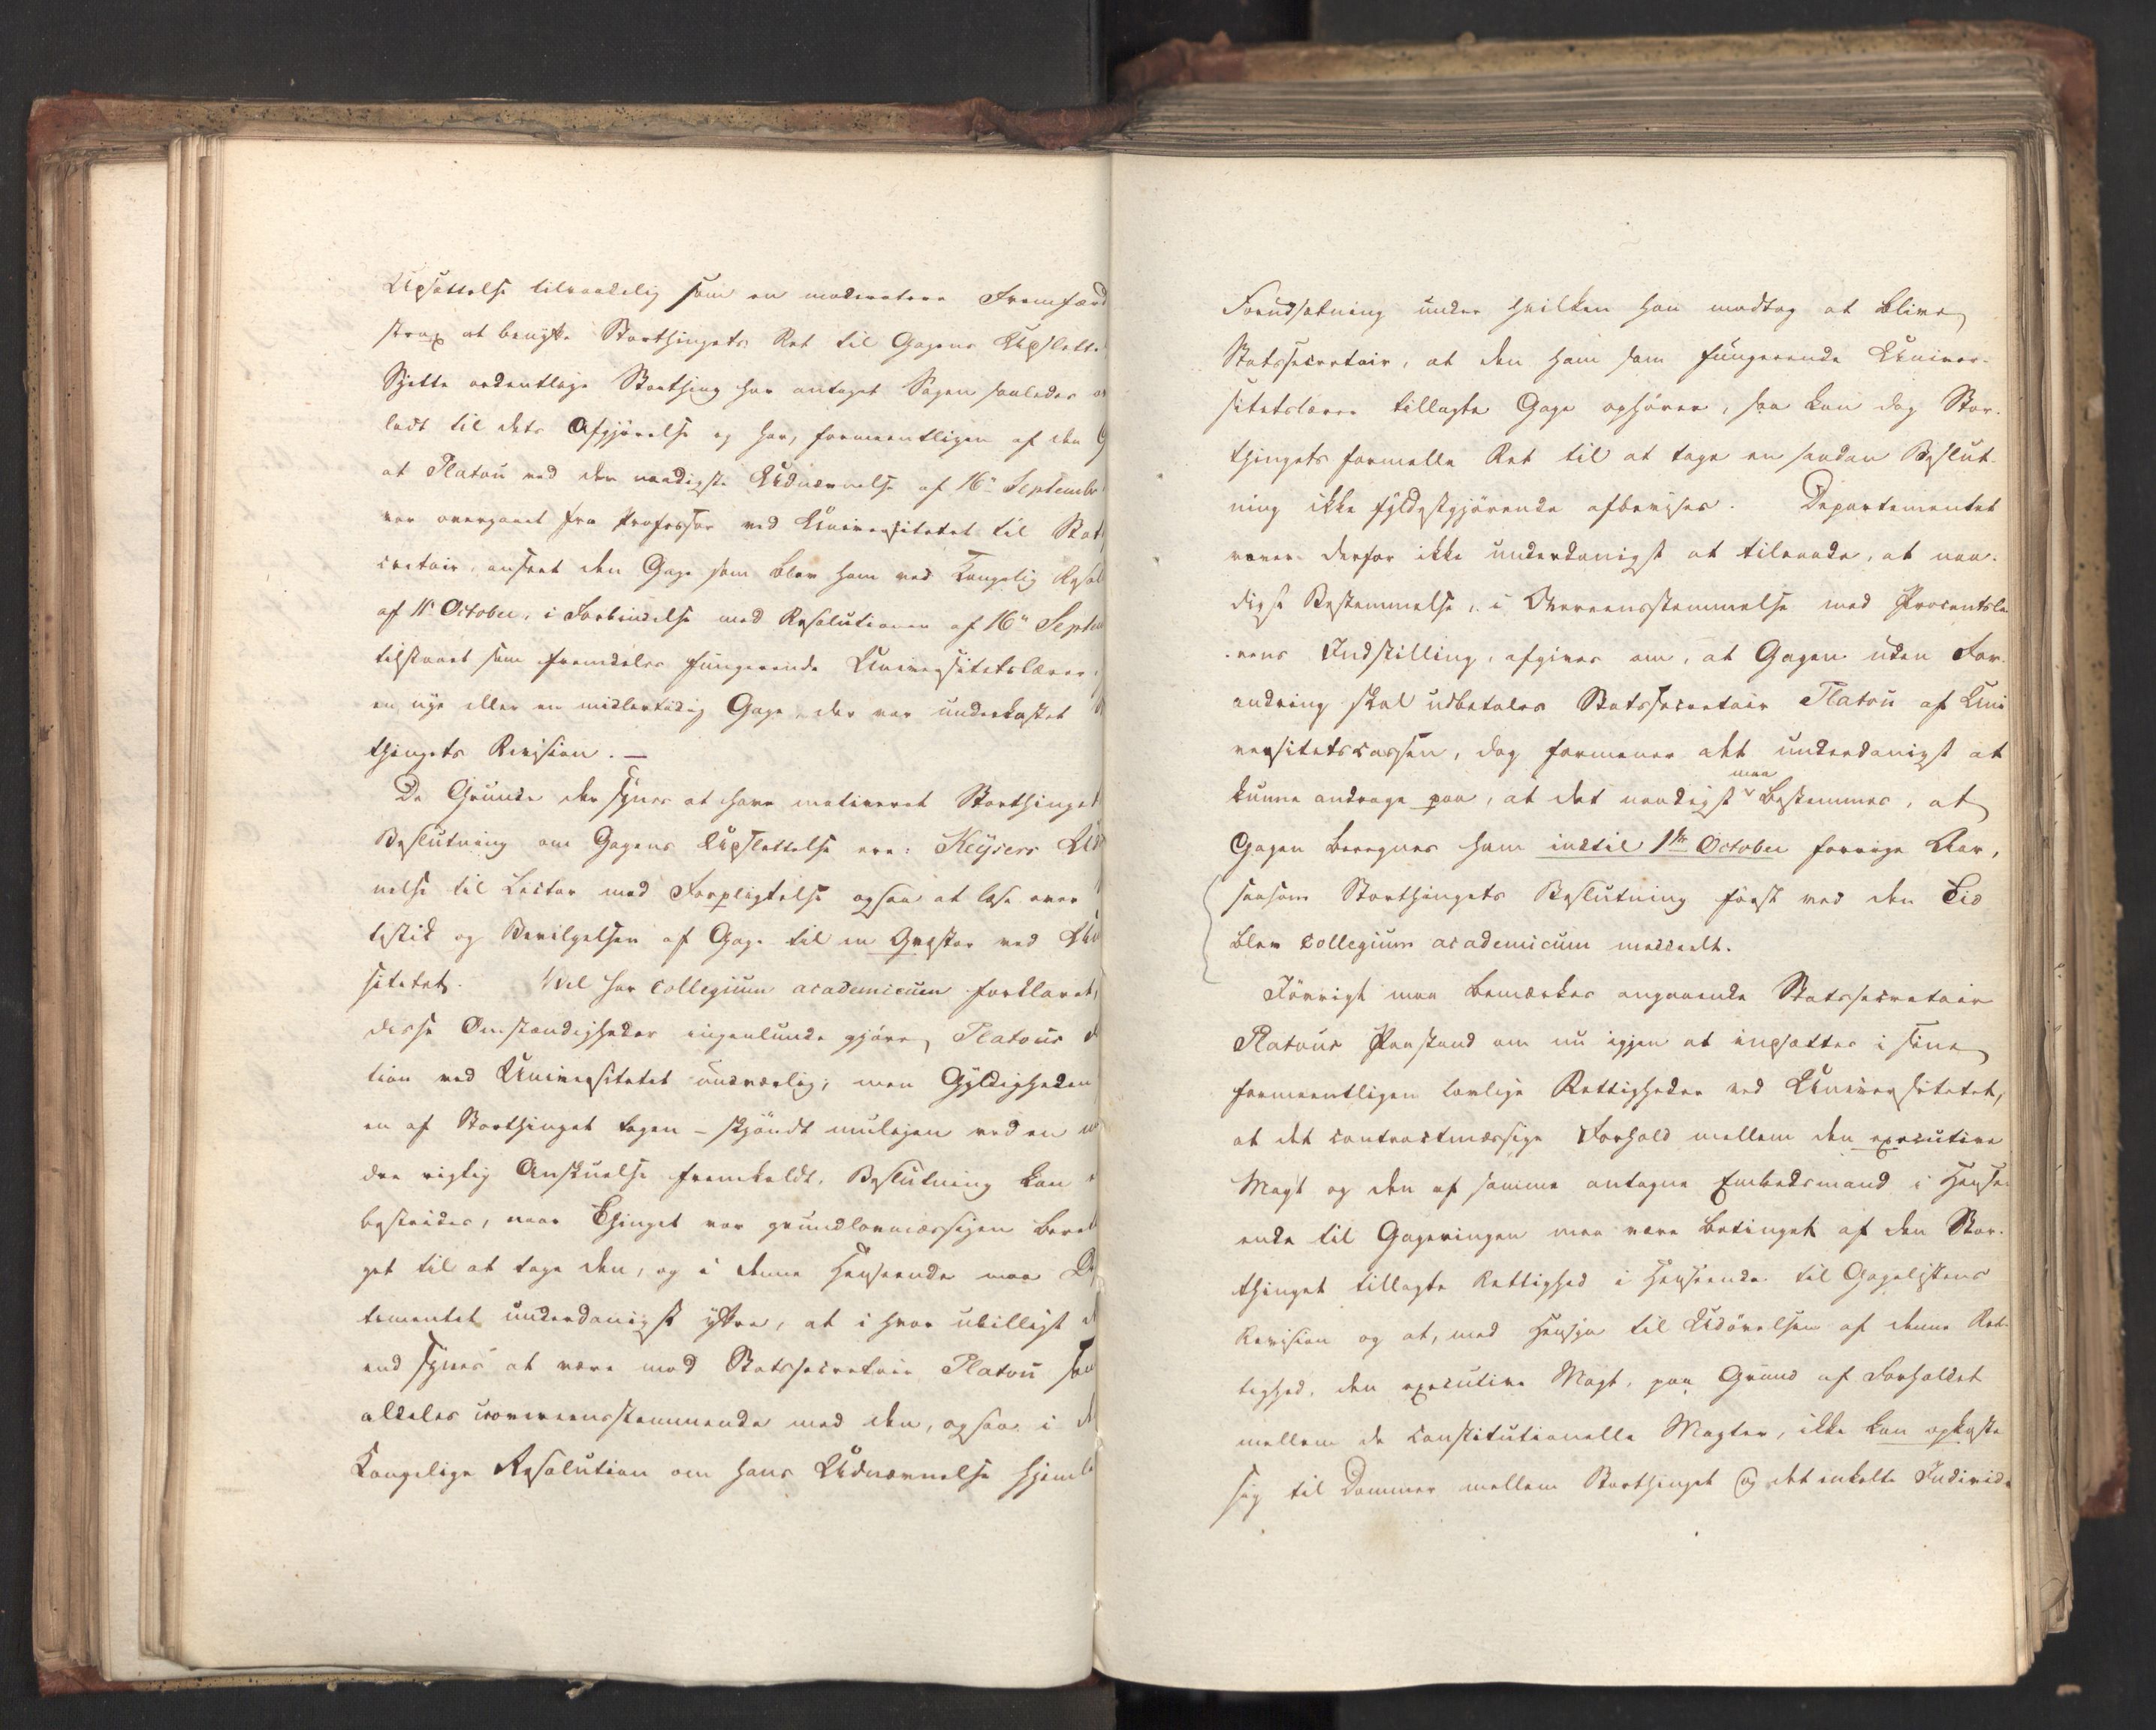 Opsættelse tilraadelig som en moderatere Fremfærd
strax at benytte Storthingets Ret til Gagens Udslette
Sjette ordentlige Storthing har antaget Sagen saaledes
ladt til dets Afgjörelse og har, formeentligen af den G
at Platou ved den naadigste Udnævnelse af 16de Septembr
var overgaaet fra Professor ved Universitetet til Stats
cretair, anseet den Gage som blev ham ved Kongelig Resol
af 11 October, i Forbindelse med Resolutionen af 16de Septem
tilstaaet som fremdeles fungerende Universitetslærer,
en nye eller en midlertidig Gage, der var underkastet
thingets Revision. —
De Grunde der synes at have motiveret Storthinget
Beslutning om Gagens Udslettelse ere: Keysers Ud
nelse til Lector med Forpligtelse ogsaa at læse over
tistik og Bevilgelsen af Gage til en Qvæstor ved Uni
sitetet. Vel har Collegium academicum forklaret,
disse Omstændigheder ingenlunde gjöre Platous
tion ved Universitetet undværlig; men Gyldigheden
en af Storthinget tagen – skjöndt muligen ved en
dre rigtig Anskuelse fremkaldt, Beslutning kan
bestrides, naar Thinget var grundlovmæssigen beret
get til at tage den, og i denne Henseende maa De
tementet underdanigst yttre, at i hvor ubillig
end synes at være mod Statssecretair Platou
aldeles uovereensstemmende med den, ogsaa i
Kongelige Resolution om hans Udnævnelse hjemle
Forudsætning under hvilken han modtog at blive
Statssecretair, at den ham som fungerende Univer-
sitetslærer tillagte Gage ophörer, saa kan dog Stor-
thingets formelle Ret til at tage en saadan Beslut-
ning ikke fyldestgjörende afbevises. Departementet
vover derfor ikke underdanigst at tilraade, at naa-
digst Bestemmelse, i Overeensstemmelse med Procantsle-
rens Indstilling, afgives om, at Gagen uden For-
andring skal udbetales Statssecretair Platou af Uni
versitetscassen, dog formener det underdanigst at
kunne andrage paa, at det naadigst maa bestemmes, at
Gagen beregnes ham indtil 1ste October forrige Aar,
saasom Storthingets Beslutning först ved den Tid
blev Collegium academicum meddeelt.
Iövrigt maa bemærkes angaaende Statssecretair
Platous Paastand om nu igjen at indsættes i sine
formeentligen lovlige Rettigheder ved Universitetet,
at det contractmæssige Forhold mellem den executive
Magt og den af samme antagne Embedsmand i Hense-
ende til Gageringen maa være betinget af den Stor-
thinget tillagte Rettighed i Henseende til Gagelistens
Revision og at, med Hensyn til Udövelsen af denne Ret-
tighed, den executive Magt, paa Grund af Forholdet
mellem de constitutionelle Magter, ikke kan opkaste
sig til Dommer mellem Storthinget og det enkelte Individ.